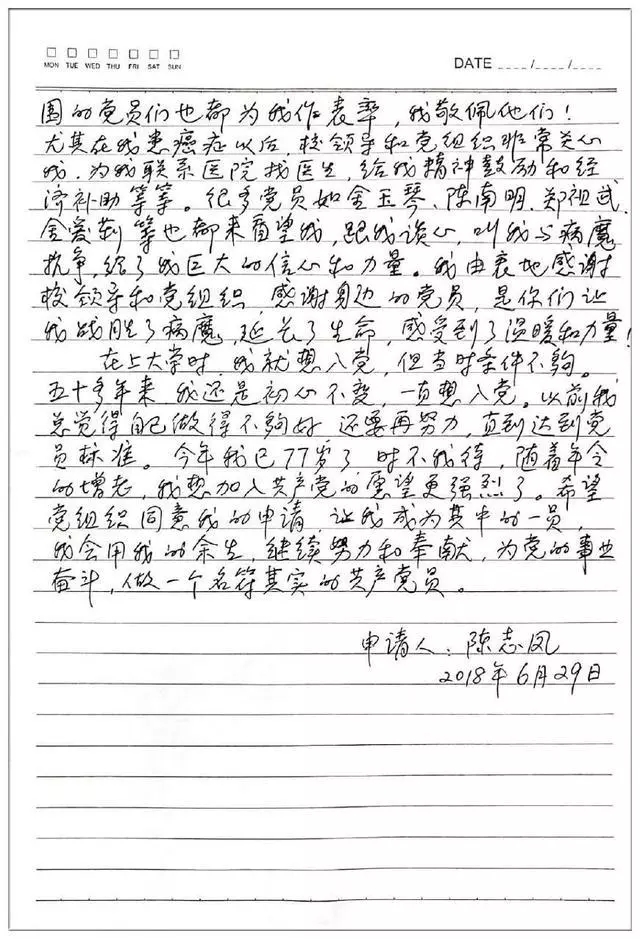 MON TUE WED THU FRI SAT SUN
DATE ____/____/____
围的党员们也都为我作表率，我敬佩他们！
尤其在我患癌症以后，校领导和党组织非常关心
我，为我联系医院找医生，给我精神鼓励和经
济补助等等。很多党员如金玉琴、陈南明、郑祖武、
金爱莉等也都来看望我，跟我谈心，叫我与病魔
抗争，给了我巨大的信心和力量。我由衷地感谢
校领导和党组织，感谢身边的党员，是你们让
我战胜了病魔，延长了生命，感受到了温暖和力量！
在上大学时，我就想入党，但当时条件不够。
五十多年来，我还是初心不变，一直想入党。以前我
总觉得自己做得不够好，还要再努力，直到达到党
员标准。今年我已77岁了，时不我待，随着年令
的增老，我想加入共产党的愿望更强烈了。希望
党组织同意我的申请，让我成为其中的一员，
我会用我的余生，继续努力和奉献，为党的事业
奋斗，做一个名符其实的共产党员。
申请人：陈志凤
2018年6月29日